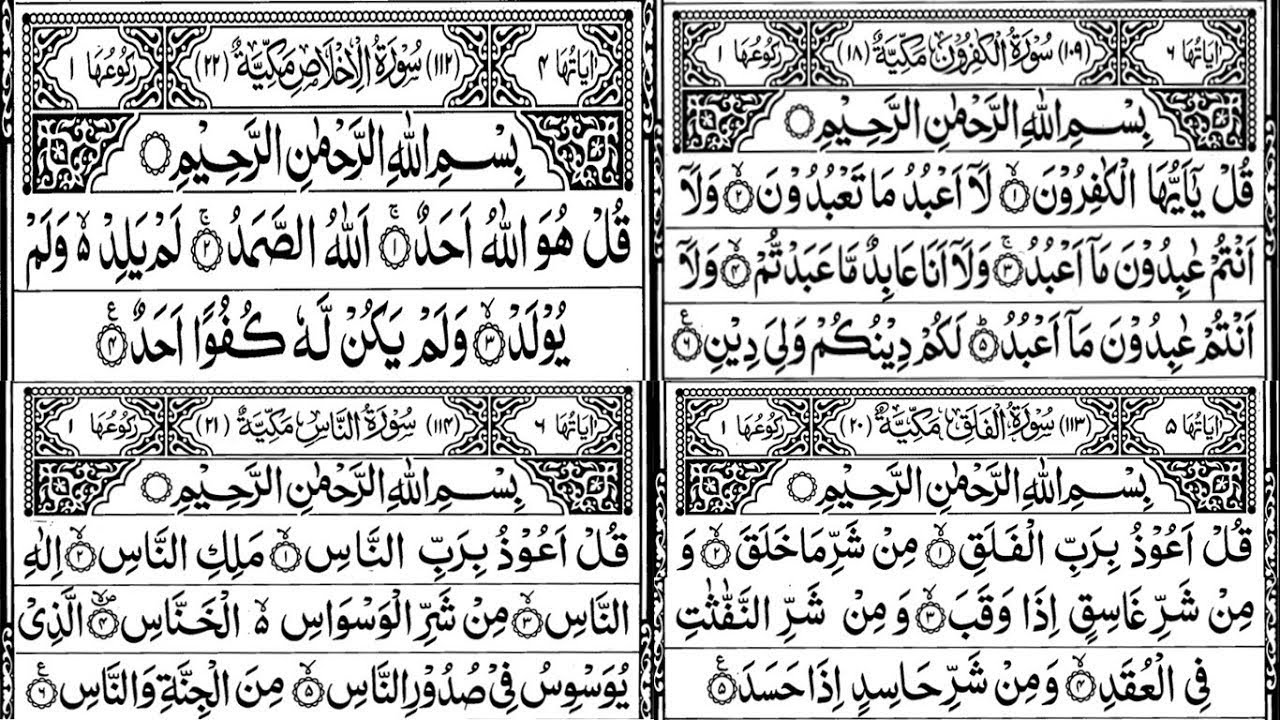 اٰيَاتُهَا ٦ (١٠٩) سُوْرَةُ الْكٰفِرُوْنَ مَكِّيَّةٌ (١٨) رُكُوْعُهَا ١
بِسْمِ اللّٰهِ الرَّحْمٰنِ الرَّحِيْمِ ۝
قُلْ يٰۤاَيُّهَا الْكٰفِرُوْنَ ۙ‏﴿۱﴾ لَاۤ اَعْبُدُ مَا تَعْبُدُوْنَ ۙ‏﴿۲﴾ وَلَاۤ
اَنْتُمْ عٰبِدُوْنَ مَاۤ اَعْبُدُ ۚ‏﴿۳﴾ وَلَاۤ اَنَا عَابِدٌ مَّا عَبَدْتُّمْ ۙ‏﴿۴﴾ وَلَاۤ
اَنْتُمْ عٰبِدُوْنَ مَاۤ اَعْبُدُ ؕ‏﴿۵﴾ لَكُمْ دِيْنُكُمْ وَلِىَ دِيْنِ ﴿۶﴾ ع
اٰيَاتُهَا ۴ (١١٢) سُوْرَةُ الْاِخْلَاصِ مَكِّيَّةٌ (٢٢) رُكُوْعُهَا ١
بِسْمِ اللّٰهِ الرَّحْمٰنِ الرَّحِيْمِ ۝
قُلْ هُوَ اللّٰهُ اَحَدٌ ۚ‏﴿۱﴾ اَللّٰهُ الصَّمَدُ ۚ‏﴿۲﴾ لَمْ يَلِدْ ۙ۬ وَلَمْ
يُوْلَدْ ۙ‏﴿۳﴾ وَلَمْ يَكُنْ لَّهٗ كُفُوًا اَحَدٌ ﴿۴﴾ ع
اٰيَاتُهَا ۵ (١١٣) سُوْرَةُ الْفَلَقِ مَكِّيَّةٌ (٢٠) رُكُوْعُهَا ١
بِسْمِ اللّٰهِ الرَّحْمٰنِ الرَّحِيْمِ ۝
قُلْ اَعُوْذُ بِرَبِّ الْفَلَقِ ۙ‏﴿۱﴾ مِنْ شَرِّ مَا خَلَقَ ۙ‏﴿۲﴾ وَ
مِنْ شَرِّ غَاسِقٍ اِذَا وَقَبَ ۙ‏﴿۳﴾ وَمِنْ شَرِّ النَّفّٰثٰتِ
فِى الْعُقَدِ ۙ‏﴿۴﴾ وَمِنْ شَرِّ حَاسِدٍ اِذَا حَسَدَ ﴿۵﴾ ع
اٰيَاتُهَا ٦ (١١۴) سُوْرَةُ النَّاسِ مَكِّيَّةٌ (٢١) رُكُوْعُهَا ١
بِسْمِ اللّٰهِ الرَّحْمٰنِ الرَّحِيْمِ ۝
قُلْ اَعُوْذُ بِرَبِّ النَّاسِ ۙ‏﴿۱﴾ مَلِكِ النَّاسِ ۙ‏﴿۲﴾ اِلٰهِ
النَّاسِ ۙ‏﴿۳﴾ مِنْ شَرِّ الْوَسْوَاسِ ۙ۬ الْخَنَّاسِ ۙ‏﴿۴﴾ الَّذِىْ
يُوَسْوِسُ فِىْ صُدُوْرِ النَّاسِ ۙ‏﴿۵﴾ مِنَ الْجِنَّةِ وَالنَّاسِ ﴿۶﴾ ع